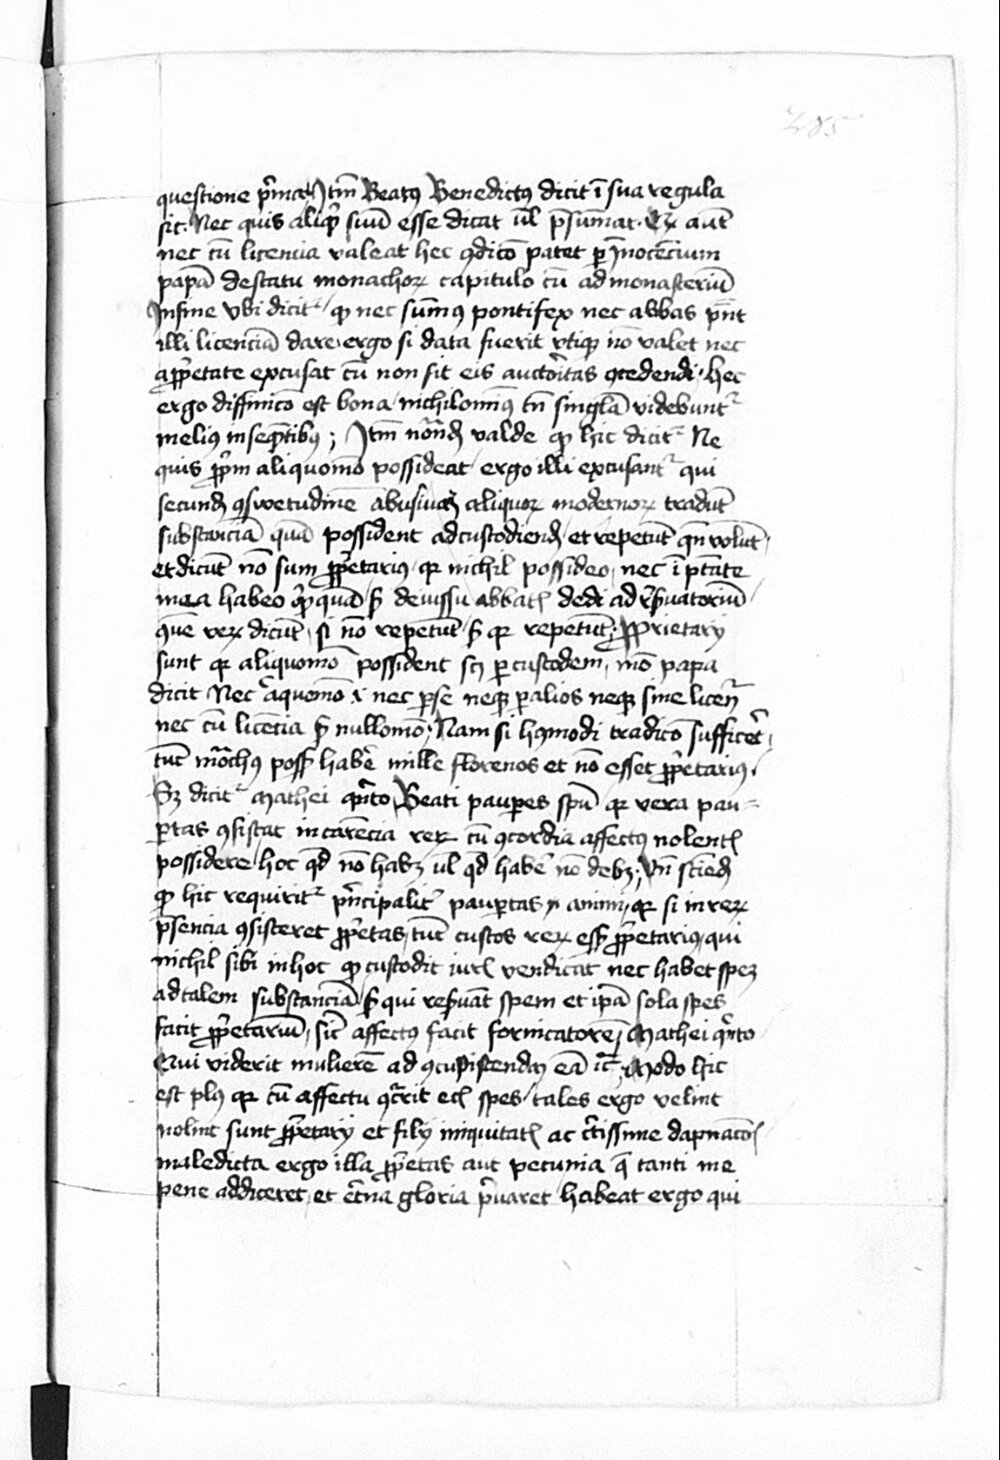 285
questione p̄ma Itm̄ Beatꝰ Benedictꝰ dicit ī sua regula
sic. Nec quis aliqͥd suū esse dicat ūl p̄sumat. Qꝫ aut̄
nec cū licencia valeat hec ꝯdicō patet ꝑ Inocēcium
papā destatu monachoꝝ capitulo cū ad monasteriū
Infine vbi dicit᷑ qͦ nec sūmꝰ pontifex nec abbas pn̄t
illi licenciā dare ergo si data fuerit vtiqꝫ nō valet nec
a ꝓp̄etate excusat cū non sit eis auctōitas ꝯcedendi hec
ergo diffinicō est bona nichilominꝰ tn̄ singlā videbunt᷑
melius in seqn̄tibꝰ ; Itm̄ nōndꝫ valde qͦ hic dicit᷑ Ne
quis ꝓpm̄ aliquomō possideat ergo illi excusant᷑ qui
secundꝫ ꝯswetudinē abusiuā aliquoꝝ modernoꝝ tradūt
substanciā quā possident ad custodiendꝫ et repetūt qn̄ volūt
et dicūt nō sum ꝓp̄etariꝰ qꝛ nichil possideo nec ī ptāte
mea habeo qͥcquā sꝫ de iussu abbatꝭ dedi ad ꝯẜuatoriū
que veꝝ dicūt si nō repetūt sꝫ qꝛ repetūt ꝓprietarij
sunt qꝛ aliquomō possident scꝫ ꝑ custodem mō papa
dicit Nec aͥquomō ⁊ nec ꝑ se neqꝫ ꝑ alios neqꝫ sine licen̄
nec cū licēcia sꝫ nullomō Nam si hꝰmodi tradicō sufficeꝛ̄
tūc mōchꝰ possꝫ habē mille florenos et nō esset ꝓp̄etariꝰ
Sꝫ dicit᷑ Mathei qn̄to Beati pauꝑes spū qꝛ vera pau⸗
ꝑtas ꝯsistat in carēcia reꝝ cū ꝯcordia affectꝰ nolentꝭ
possidere hoc qd̄ nō habꝫ ūl qd̄ habē nō debꝫ ; Vn̄ sciendꝫ
qͦ hic requirit᷑ pn̄cipalit̄ pauꝑtas animi qꝛ si in reꝝ
p̄sencia ꝯsisteret ꝓp̄etas tūc custos reꝝ essꝫ ꝓp̄etariꝰ qui
nichil sibi in hoc qͦ custodit iurꝭ vendicat nec habet spem
ad talem substanciā sꝫ qui reẜuāt spem et ip̄a sola spes
facit ꝓp̄etariū sic̄ affectus facit fornicatorē Mathei qn̄to
Qui viderit mulierē ad ꝯcupiscendā eā ⁊c̄ Modo hic
est plꝰ qꝛ cū affectu qͥrit eciā spes tales ergo velint
nolint sunt ꝓp̄etarij et filij iniquitatꝭ ac c̄tissime dapnacōꝭ
maledicta ergo illa ꝓp̄etas aut pecunia q̄ tanti me
pene addiceret et etn̄a gloria pͥuaret habeat ergo qui